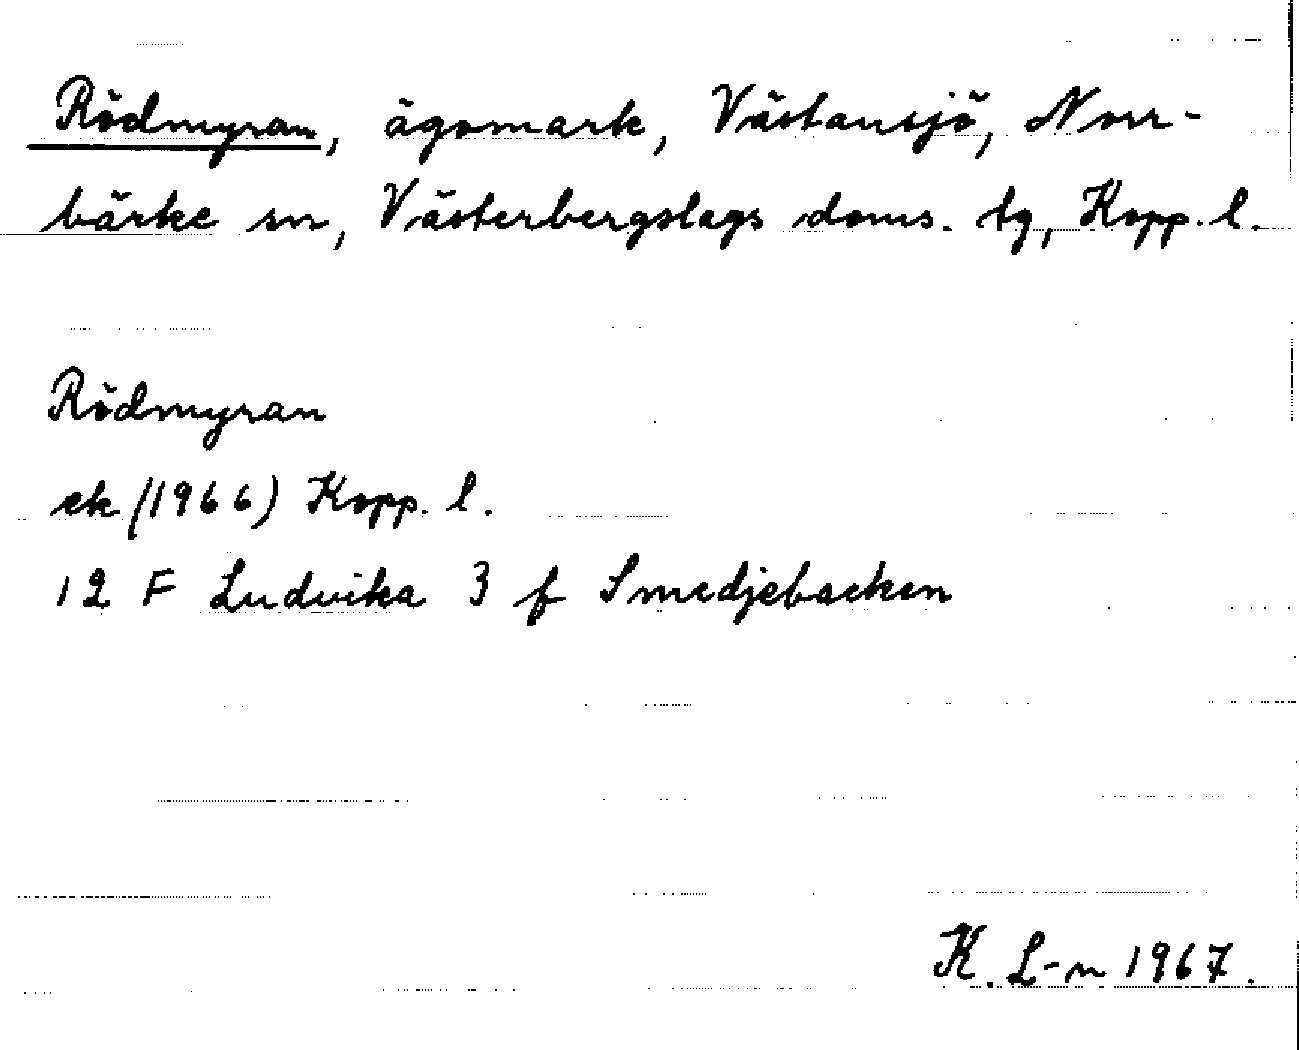 Rödmyran, ägomark, Västansjö, Norr-
bärke sn, Västerbergslags doms. tg, Kopp. l.
Rödmyran
ek (1966) Kopp. l.
12 F Ludvika 3 f Smedjebacken
K. L-n 1967.